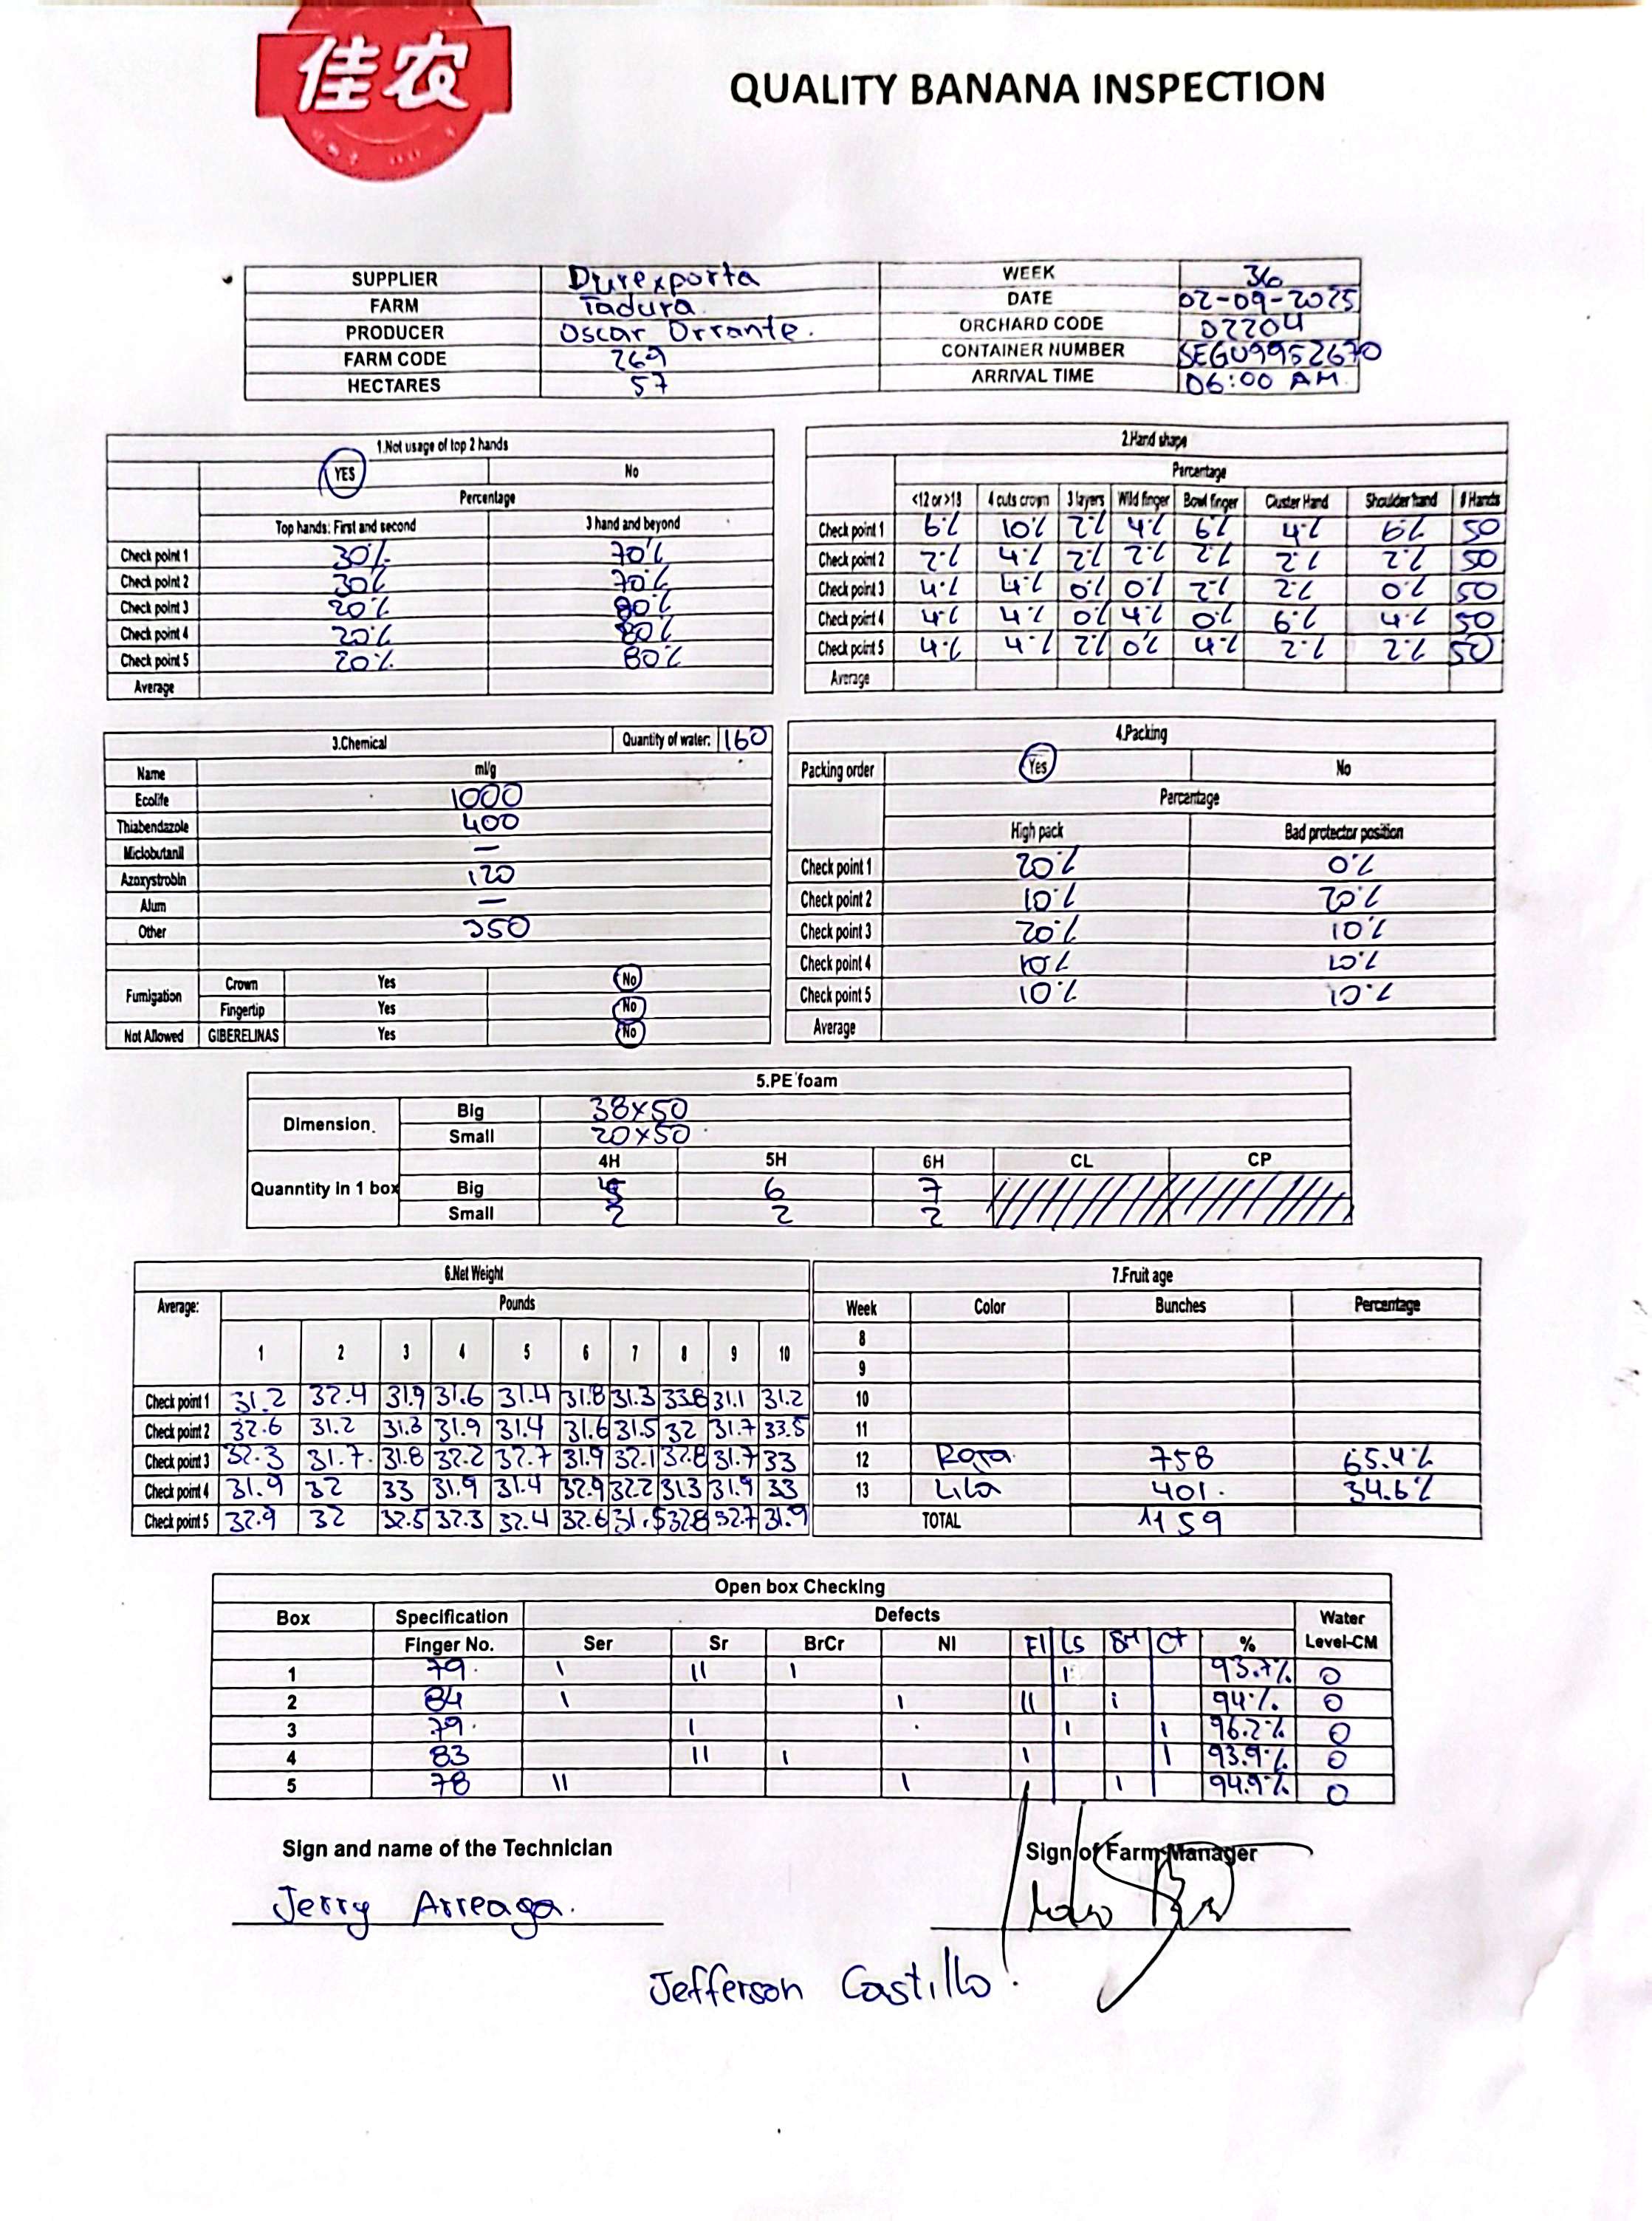 佳农
QUALITY BANANA INSPECTION
SUPPLIER Durexporta WEEK 36
FARM Tadura. DATE 02-09-2025
PRODUCER Oscar Orrante. ORCHARD CODE 02204
FARM CODE 269 CONTAINER NUMBER SEGU9952670
HECTARES 57 ARRIVAL TIME 06:00 AM.
1.Not usage of top 2 hands
YES No
Percentage
Top hands: First and second 3 hand and beyond
Check point 1 30% 70%
Check point 2 30% 70%
Check point 3 20% 80%
Check point 4 20% 80%
Check point 5 20% 80%
Average
2.Hand shape
Percentage
<12 or >18 4 cuts crown 3 layers Wild finger Bowl finger Custer Hand Shoulder hand # Hands
Check point 1 6% 10% 2% 4% 6% 4% 6% 50
Check point 2 2% 4% 2% 2% 2% 2% 2% 50
Check point 3 4% 4% 0% 0% 2% 2% 0% 50
Check point 4 4% 4% 0% 4% 0% 6% 4% 50
Check point 5 4% 4% 2% 0% 4% 2% 2% 50
Average
3.Chemical Quantity of water: 160
Name ml/g
Ecolife 1000
Thiabendazole 400
Miclobutanil —
Azoxystrobin 120
Alum —
Other 350
Fumigation Crown Yes No
Fingertip Yes No
Not Allowed GIBERELINAS Yes No
4.Packing
Packing order Yes No
Percentage
High pack Bad protector position
Check point 1 20% 0%
Check point 2 10% 20%
Check point 3 20% 10%
Check point 4 10% 10%
Check point 5 10% 10%
Average
5.PE foam
Dimension. Big 38x50
Small 20x50
4H 5H 6H CL CP
Quanntity in 1 box Big 5 6 7
Small 2 2 2
6.Net Weight
Average: Pounds
1 2 3 4 5 6 7 8 9 10
Check point 1 31.2 32.4 31.9 31.6 31.4 31.8 31.3 33.8 31.1 31.2
Check point 2 32.6 31.2 31.3 31.9 31.4 31.6 31.5 32 31.7 33.5
Check point 3 32.3 31.7 31.8 32.2 32.7 31.9 32.1 32.8 31.7 33
Check point 4 31.9 32 33 31.9 31.4 32.9 32.2 31.3 31.9 33
Check point 5 32.9 32 32.5 32.3 32.4 32.6 31.5 32.8 32.7 31.9
7.Fruit age
Week Color Bunches Percentage
8
9
10
11
12 Roja 758 65.4%
13 Lila 401. 34.6%
TOTAL 1159
Open box Checking
Box Specification Defects Water
Finger No. Ser Sr BrCr NI FI LS BM CT % Level-CM
1 79. I II I I 93.7% 0
2 84 I I II I 94% 0
3 79. I I I 96.2% 0
4 83 II I I I 93.9% 0
5 78 II I I 94.9% 0
Sign and name of the Technician Sign of Farm Manager
Jerry Arreaga.
Jefferson Castillo.